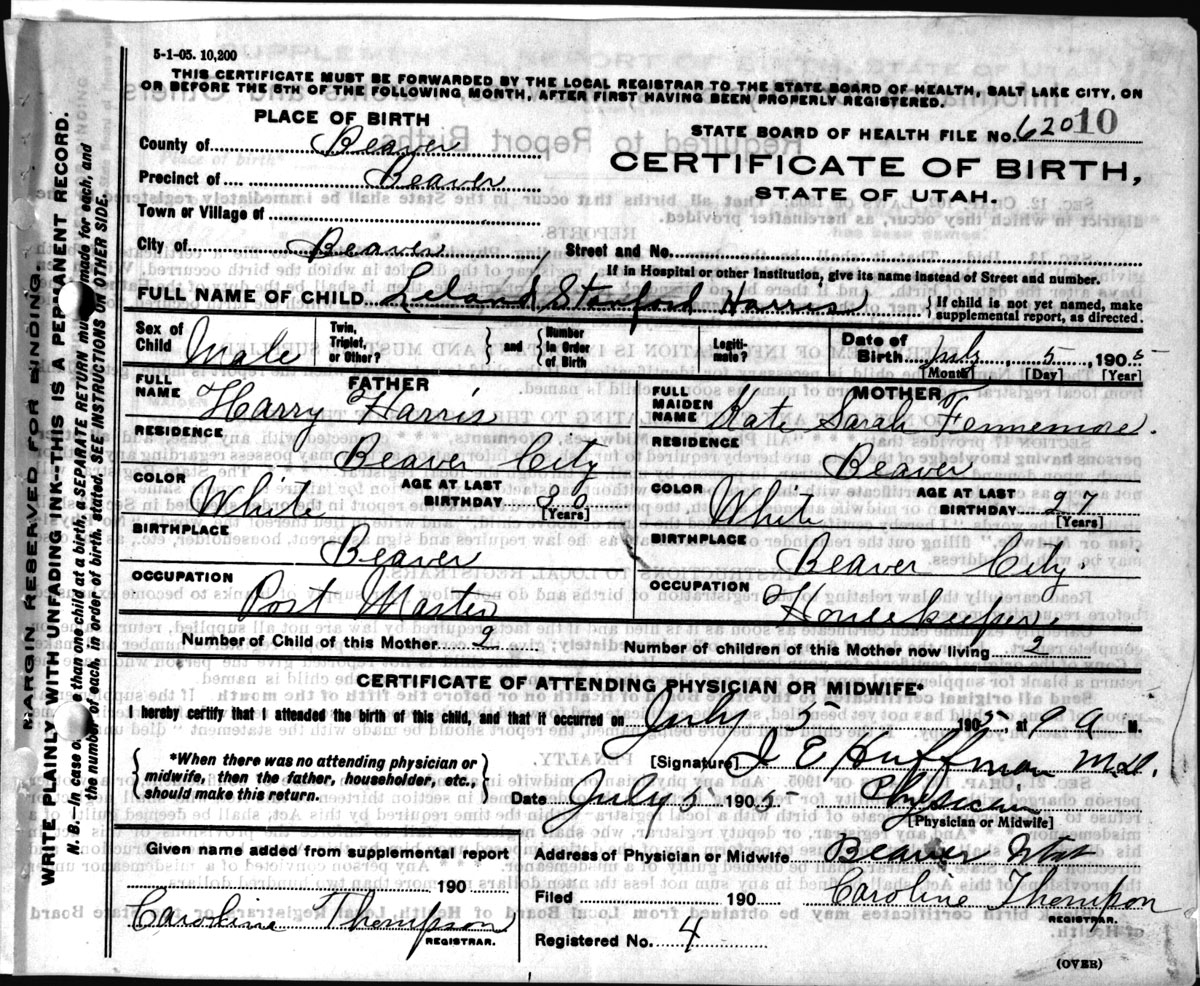 5-1-05. 10,200
THIS CERTIFICATE MUST BE FORWARDED BY THE LOCAL REGISTRAR TO THE STATE BOARD OF HEALTH, SALT LAKE CITY, ON
OR BEFORE THE 5TH OF THE FOLLOWING MONTH, AFTER FIRST HAVING BEEN PROPERLY REGISTERED.
PLACE OF BIRTH
STATE BOARD OF HEALTH FILE No. 620 10
County of Beaver
CERTIFICATE OF BIRTH,
Precinct of Beaver
STATE OF UTAH.
Town or Village of
City of Beaver Street and No.
If in Hospital or other Institution, give its name instead of Street and number.
FULL NAME OF CHILD Leland Stanford Harris { If child is not yet named, make
supplemental report, as directed.
Sex of Child Male Twin, Triplet, or Other? } and { Number in Order of Birth Legiti- mate? Date of Birth July 5, 1905
[Month] [Day] [Year]
FATHER
FULL NAME Harry Harris
RESIDENCE
Beaver City
COLOR White AGE AT LAST BIRTHDAY
[Years]
BIRTHPLACE
Beaver
OCCUPATION
Post Master
MOTHER
FULL MAIDEN NAME Kate Sarah Fennemore.
RESIDENCE
Beaver
COLOR White AGE AT LAST BIRTHDAY 27
[Years]
BIRTHPLACE
Beaver City
OCCUPATION
Housekeeper
Number of Child of this Mother 2 Number of children of this Mother now living 2
CERTIFICATE OF ATTENDING PHYSICIAN OR MIDWIFE*
I hereby certify that I attended the birth of this child, and that it occurred on July 5 1905, at 9 a M.
*When there was no attending physician or
midwife, then the father, householder, etc.,
should make this return.
[Signature] J E Huffman M.D.
Date July 5 1905 Physician
[Physician or Midwife]
Given name added from supplemental report
190
Caroline Thompson
REGISTRAR.
Address of Physician or Midwife Beaver Utah
Filed 190 Caroline Thompson
REGISTRAR.
Registered No. 4
(OVER)
MARGIN RESERVED FOR BINDING.
WRITE PLAINLY WITH UNFADING INK—THIS IS A PERMANENT RECORD.
N. B.—In case of more than one child at a birth, a SEPARATE RETURN must be made for each, and
the number of each, in order of birth, stated. SEE INSTRUCTIONS ON OTHER SIDE.